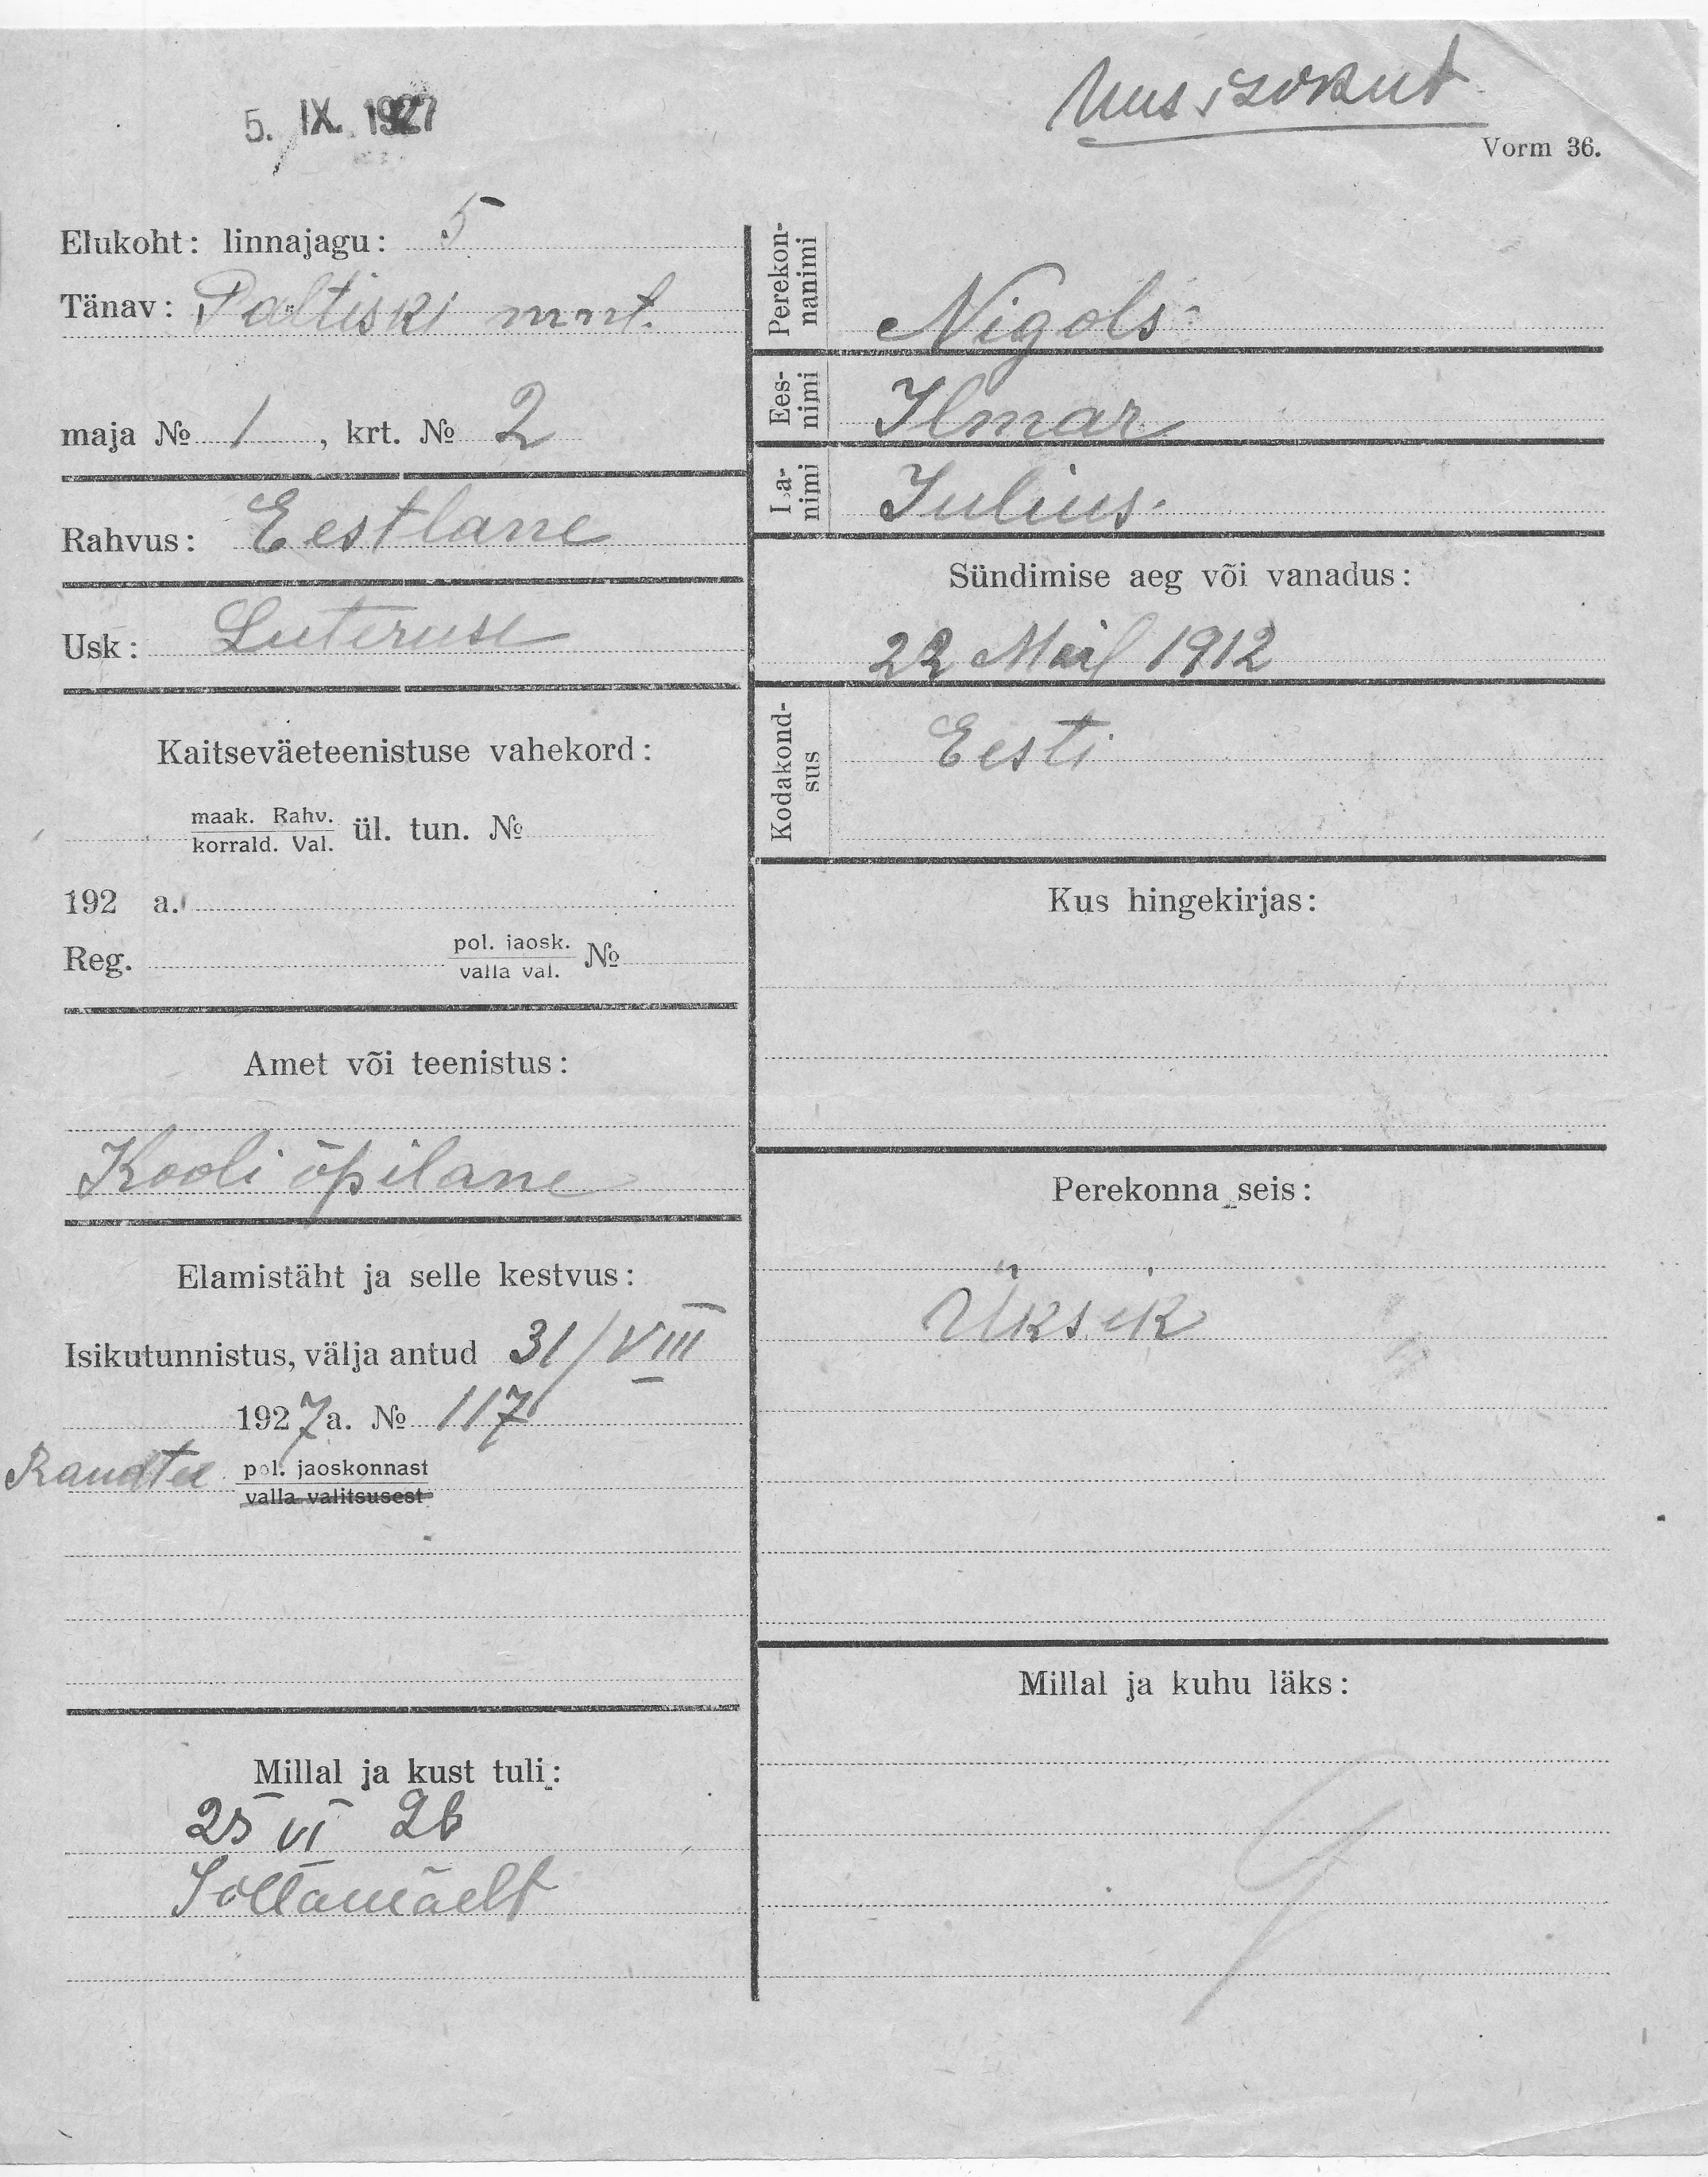 5. IX. 1927
Uus isikut
Vorm 36.
Elukoht: linnajagu: 5
Tänav: Paltiski mnt.
maja № 1, krt. № 2
Rahvus: Eestlane
Usk: Luteruse
Kaitseväeteenistuse vahekord:
maak. Rahv.
korrald. Val. ül. tun. №
192 a.
Reg. pol. jaosk. №
valla val.
Amet või teenistus:
Kooli õpilane
Elamistäht ja selle kestvus:
Isikutunnistus, välja antud 31/VIII
1927 a. № 117
Raudtee pol. jaoskonnast
valla valitsusest
Millal ja kust tuli:
25 VI 26
Perekon-
nanimi
Nigols
Ees-
nimi
Ilmar
Isa-
nimi
Julius
Sündimise aeg või vanadus:
22 Mail 1912
Kodakond-
sus
Eesti
Kus hingekirjas:
Perekonna seis:
Üksik
Millal ja kuhu läks: